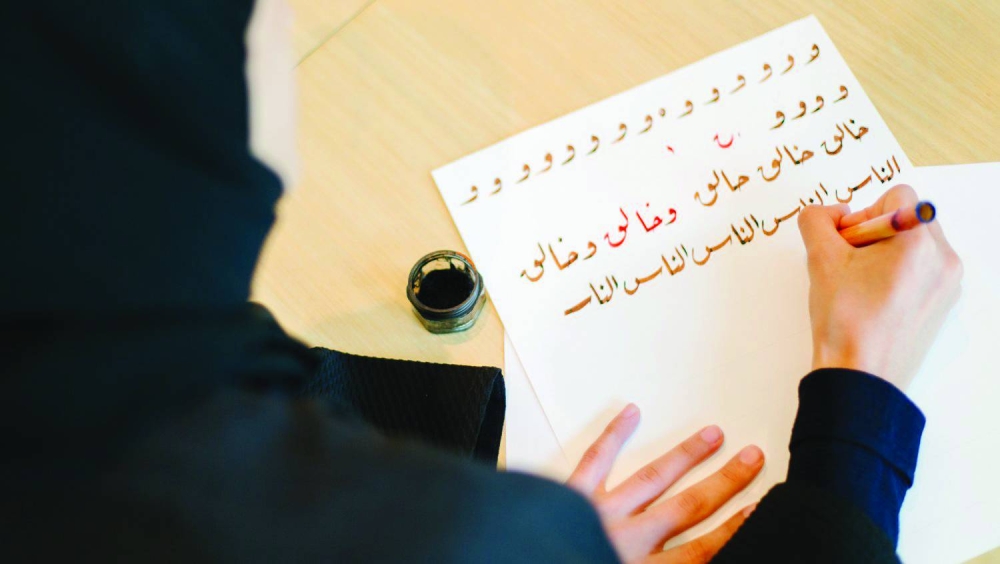 و و و و و و و و و و و و و و و
و و و و
خالق خالق حالق وخالق وخالق
الناس الناس الناس الناس النا